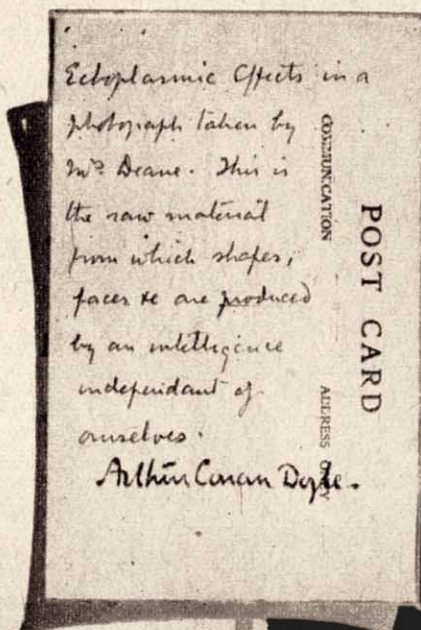 Ectoplasmic Effects in a
photograph taken by
Mrs Deane. This is
the raw material
from which shapes,
faces &c are produced
by an intelligence
independant of
ourselves.
Arthur Conan Doyle.
POST CARD
COMMUNICATION
ADDRESS ONLY